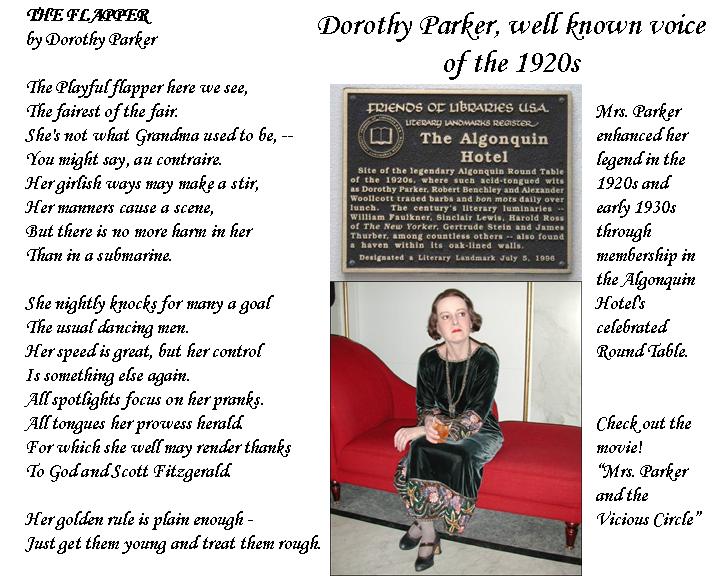 THE FLAPPER
by Dorothy Parker
The Playful flapper here we see,
The fairest of the fair.
She's not what Grandma used to be, --
You might say, au contraire.
Her girlish ways may make a stir,
Her manners cause a scene,
But there is no more harm in her
Than in a submarine.
She nightly knocks for many a goal
The usual dancing men.
Her speed is great, but her control
Is something else again.
All spotlights focus on her pranks.
All tongues her prowess herald.
For which she well may render thanks
To God and Scott Fitzgerald.
Her golden rule is plain enough -
Just get them young and treat them rough.
Dorothy Parker, well known voice
of the 1920s
FRIENDS OF LIBRARIES U.S.A.
LITERARY LANDMARKS REGISTER
The Algonquin
Hotel
Site of the legendary Algonquin Round Table
of the 1920s, where such acid-tongued wits
as Dorothy Parker, Robert Benchley and Alexander
Woollcott traded barbs and bon mots daily over
lunch. The century's literary luminaries --
William Faulkner, Sinclair Lewis, Harold Ross
of The New Yorker, Gertrude Stein and James
Thurber, among countless others -- also found
a haven within its oak-lined walls.
Designated a Literary Landmark July 5, 1996
Mrs. Parker
enhanced her
legend in the
1920s and
early 1930s
through
membership in
the Algonquin
Hotel's
celebrated
Round Table.
Check out the
movie!
“Mrs. Parker
and the
Vicious Circle”